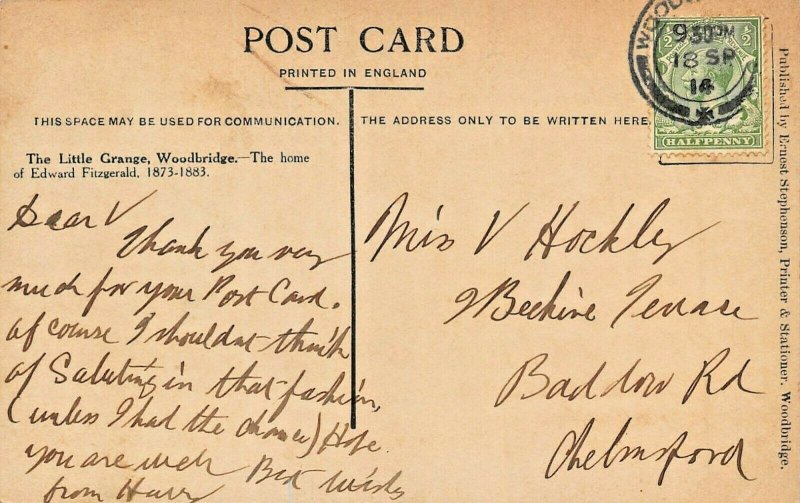 POST CARD
PRINTED IN ENGLAND
THIS SPACE MAY BE USED FOR COMMUNICATION.
THE ADDRESS ONLY TO BE WRITTEN HERE
The Little Grange, Woodbridge.—The home
of Edward Fitzgerald, 1873-1883.
Dear V
Thank you very
much for your Post Card.
of course I shouldnt think
of Saluting in that fashion,
(unless I had the chance) Hope
you are well Best wishes
from Harry
Miss V Hockley
2 Beehive Terrace
Baddow Rd
Chelmsford
9.30PM
18 SP
14
HALFPENNY
Published by Ernest Stephenson, Printer & Stationer, Woodbridge.